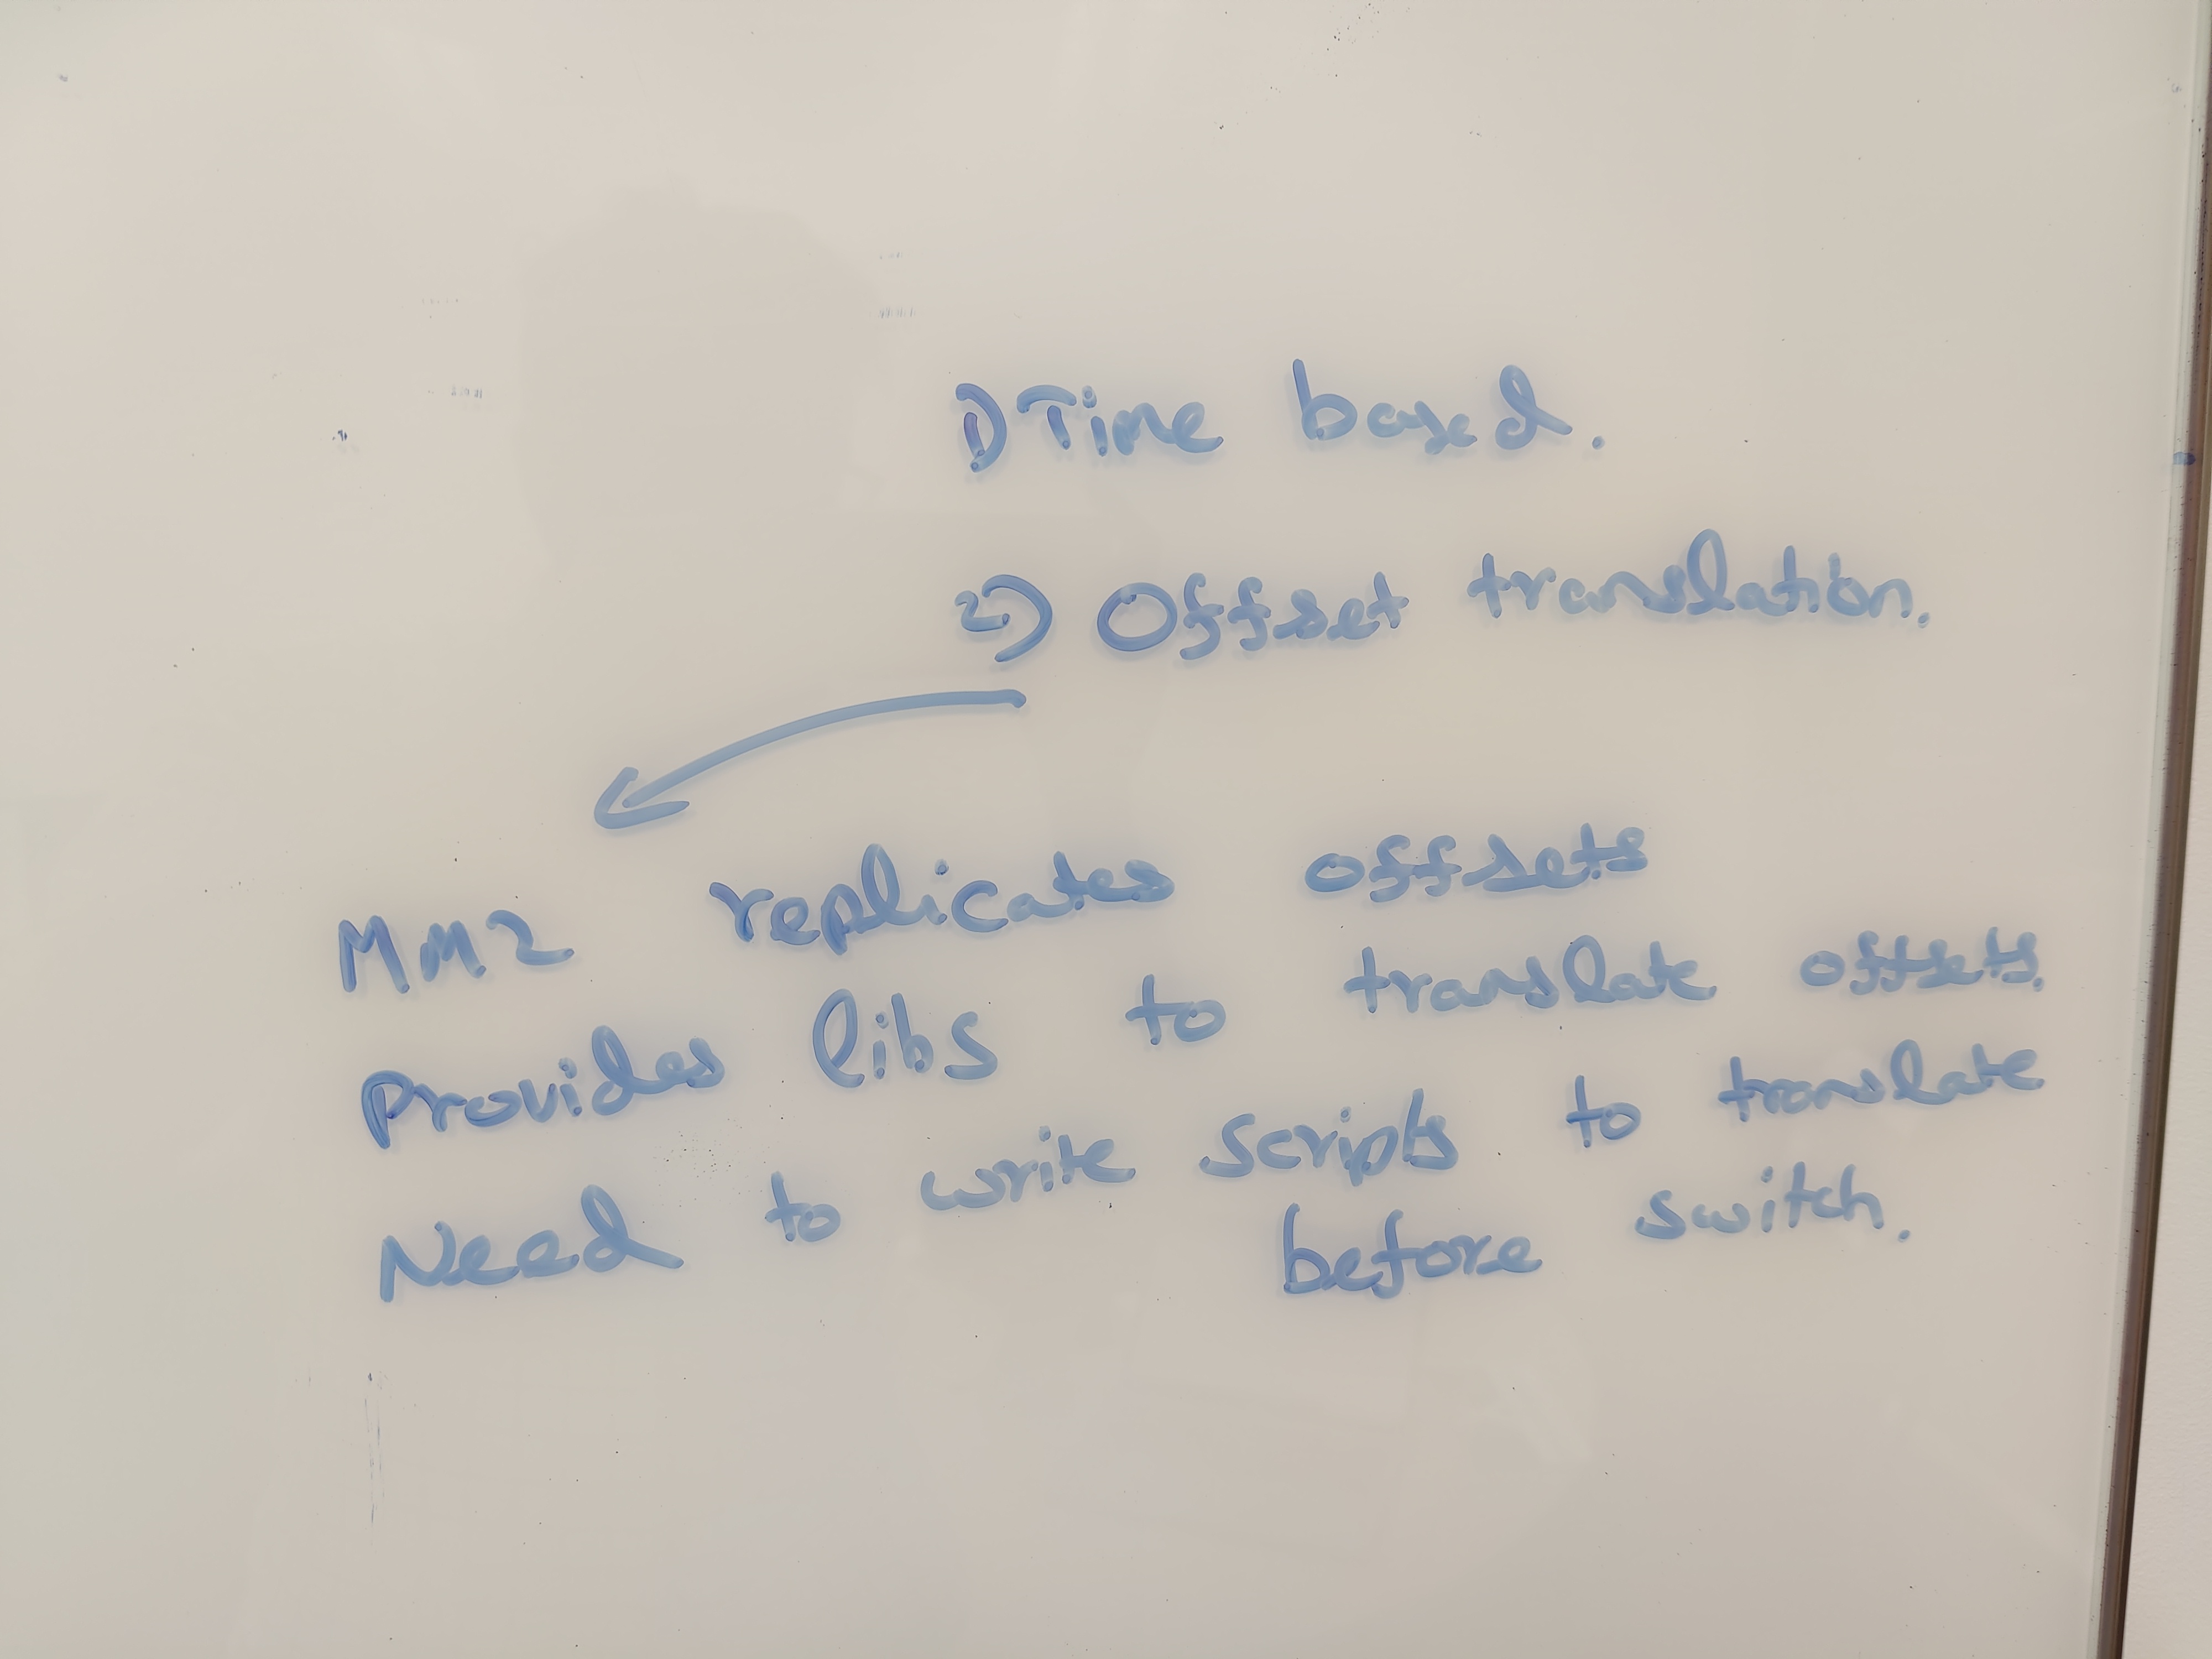 1) Time based.
2) Offset translation.
MM2 replicates offsets
Provides libs to translate offsets.
Need to write scripts to translate
before switch.